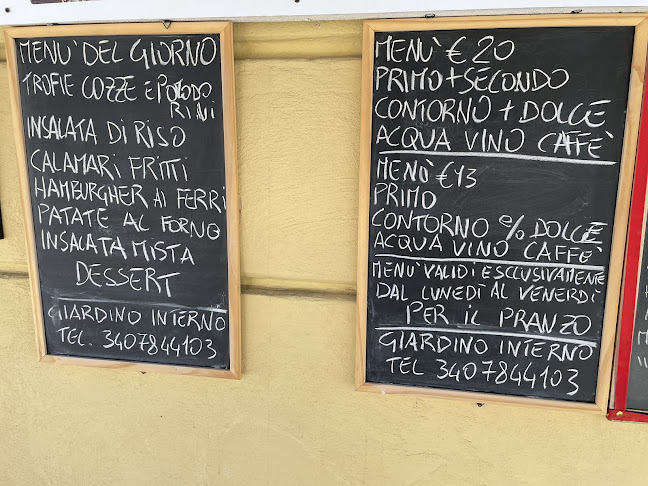 MENU' DEL GIORNO
TROFIE COZZE E POMODO
RINI
INSALATA DI RISO
CALAMARI FRITTI
HAMBURGHER AI FERRI
PATATE AL FORNO
INSALATA MISTA
DESSERT
GIARDINO INTERNO
TEL. 3407844103
MENÙ € 20
PRIMO + SECONDO
CONTORNO + DOLCE
ACQUA VINO CAFFÈ
MENÙ €13
PRIMO
CONTORNO % DOLCE
ACQUA VINO CAFFÈ
MENÙ VALIDI ESCLUSIVAMENTE
DAL LUNEDÌ AL VENERDÌ
PER IL PRANZO
GIARDINO INTERNO
TEL 3407844103